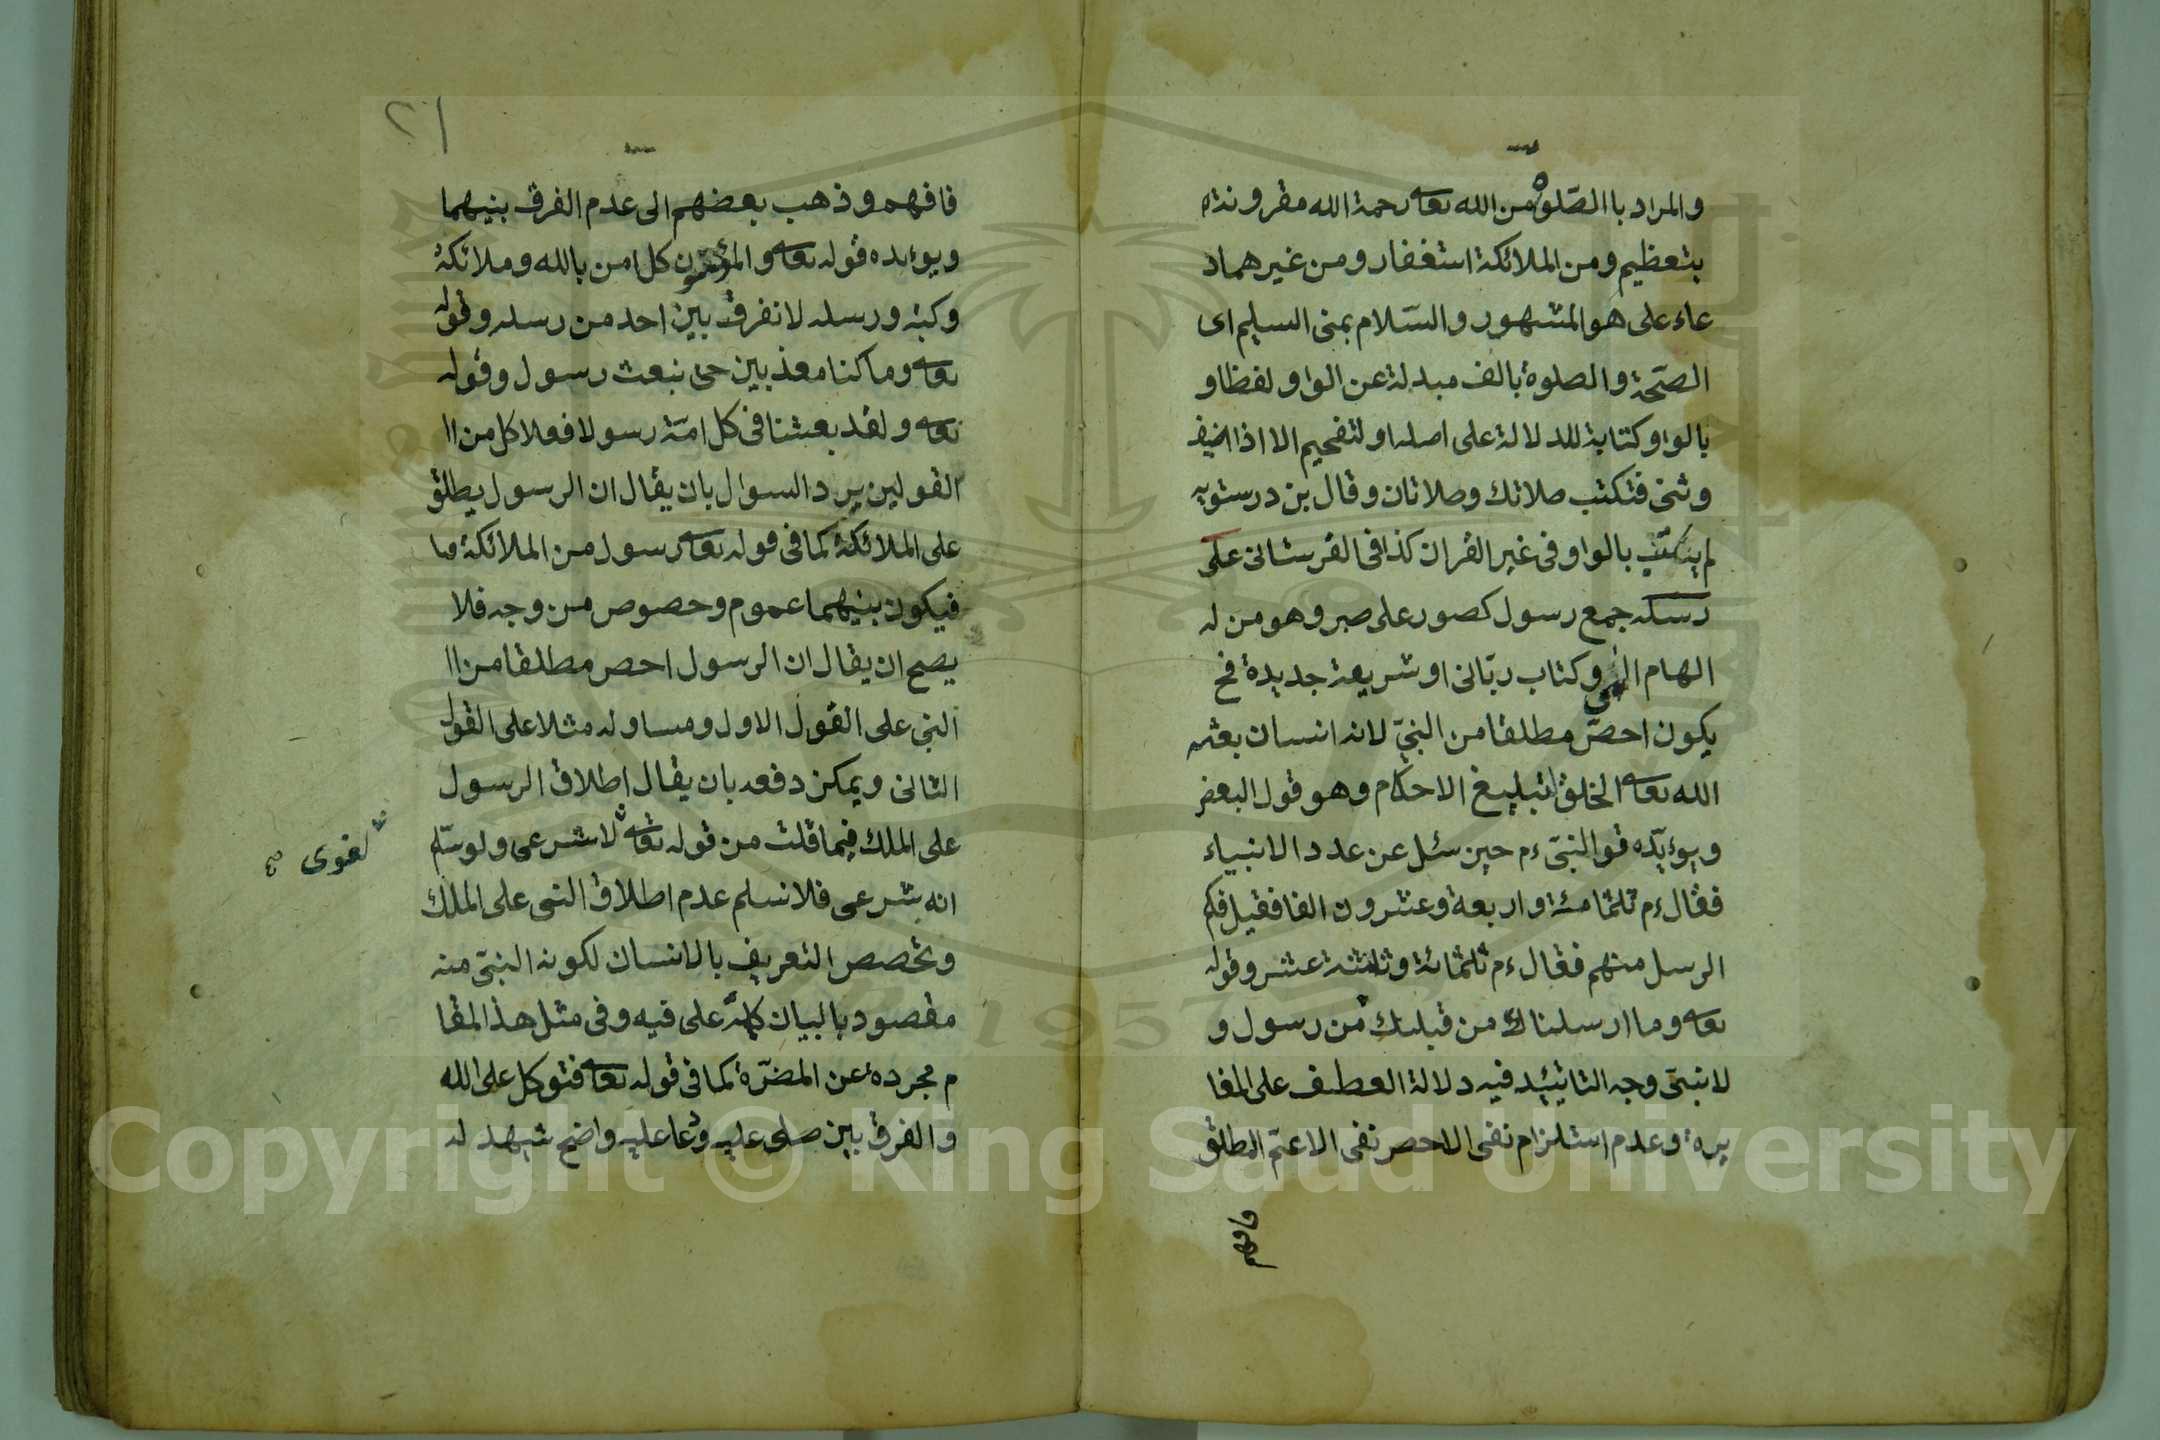 والمراد باالصّلوة من الله تعا رحمة الله مقرونة
بتعظيم ومن الملائكة استغفار ومن غيرهما د
عاء على هو المشهور والسّلام بمنى السليم اى
الصّحة والصلوة بالف مبدلة عن الواو لفظا و
بالواو كتابة للدلالة على اصله اولتفخيم الا اذا اضيف
وثنى فتكتب صلاتك وصلاتان وقال بن درستويه
لم يكتب بالواو فى غير القران كذا فى القرستانى على
رسله جمع رسول كصور على صبر وهو من له
الهام الهى وكتاب ربّانى او شريعة جديدة فح
يكون احصّ مطلقا من النبىّ لانه انسان بعثه
الله تعا الخلق لتبليغ الاحكام وهو قول البعض
ويؤيّده قو النبّى ءم حين سئل عن عدد الانبياء
فقال ءم ثلثمامئة واربعة وعشرون الفا فقيل فكم
الرسل منهم فقال ءم ثلثمائة وثلثة عشر وقوله
تعا وما ارسلناك من قبلك من رسول و
لا نبىّ وجه التائيد فيه دلالة العطف على المغا
يرة وعدم استلزام نفى الاحص نفى الاعمّ المطلق
فافهم
٢١
فافهم وذهب بعضهم الى عدم الفرق بنيهما
ويؤيده قوله تعا والمؤمنون كل امن بالله وملائكة
وكتبه ورسله لا نفرق بين احد من رسله وقوله
تعا وما كنا معذبين حتى نبعث رسول وقوله
تعا ولقد بعثنا فى كل امّة رسولا فعلا كل من ا ا
القولين يرد السوال بان يقال ان الرسول يطلق
على الملائكة كما فى قوله تعا رسول من الملائكة ما
فيكون بنيهما عموم وحصوص من وجه فلا
يصح ان يقال ان الرسول احص مطلقا من ا ا
النبى على القول الاول ومساوله مثلا على القول
الثانى ويمكن دفعه بان يقال اطلاق الرسول
على الملك فيما قلت من قوله تعا لا شرعى ولو سلّم
لغوى صح
انه شرعى فلا نسلم عدم اطلاق النبى على الملك
وتخصص التعريف بالانسان لكونه النبىّ منه
مقصود بالبيان كلمة على فيه وفى مثل هذا المقا
م مجردة عن المضرّة كما فى قوله تعا فتوكل على الله
والفرق بين صلى عليه ودعا عليه واضح شهد له
Copyright © King Saud University
1957